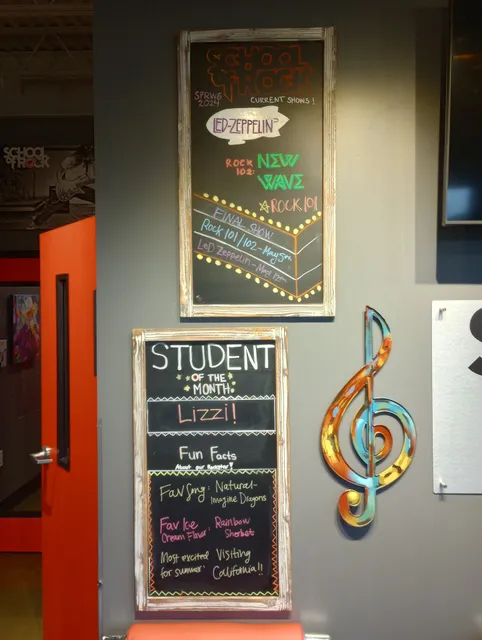 SCHOOL
of ROCK
SPRING
2024
CURRENT SHOWS!
LED-ZEPPELIN
ROCK
102:
NEW
WAVE
☆ROCK 101
FINAL SHOW
Rock 101/102 - May 5th
Led Zeppelin - May
SCHOOL
of ROCK
STUDENT
OF THE
MONTH
Lizzi!
Fun Facts
About our Rockstar
Fav Song: Natural-
Imagine Dragons
Fav Ice
Cream Flavor: Rainbow
Sherbet
Most excited
for summer: Visiting
California!!
S